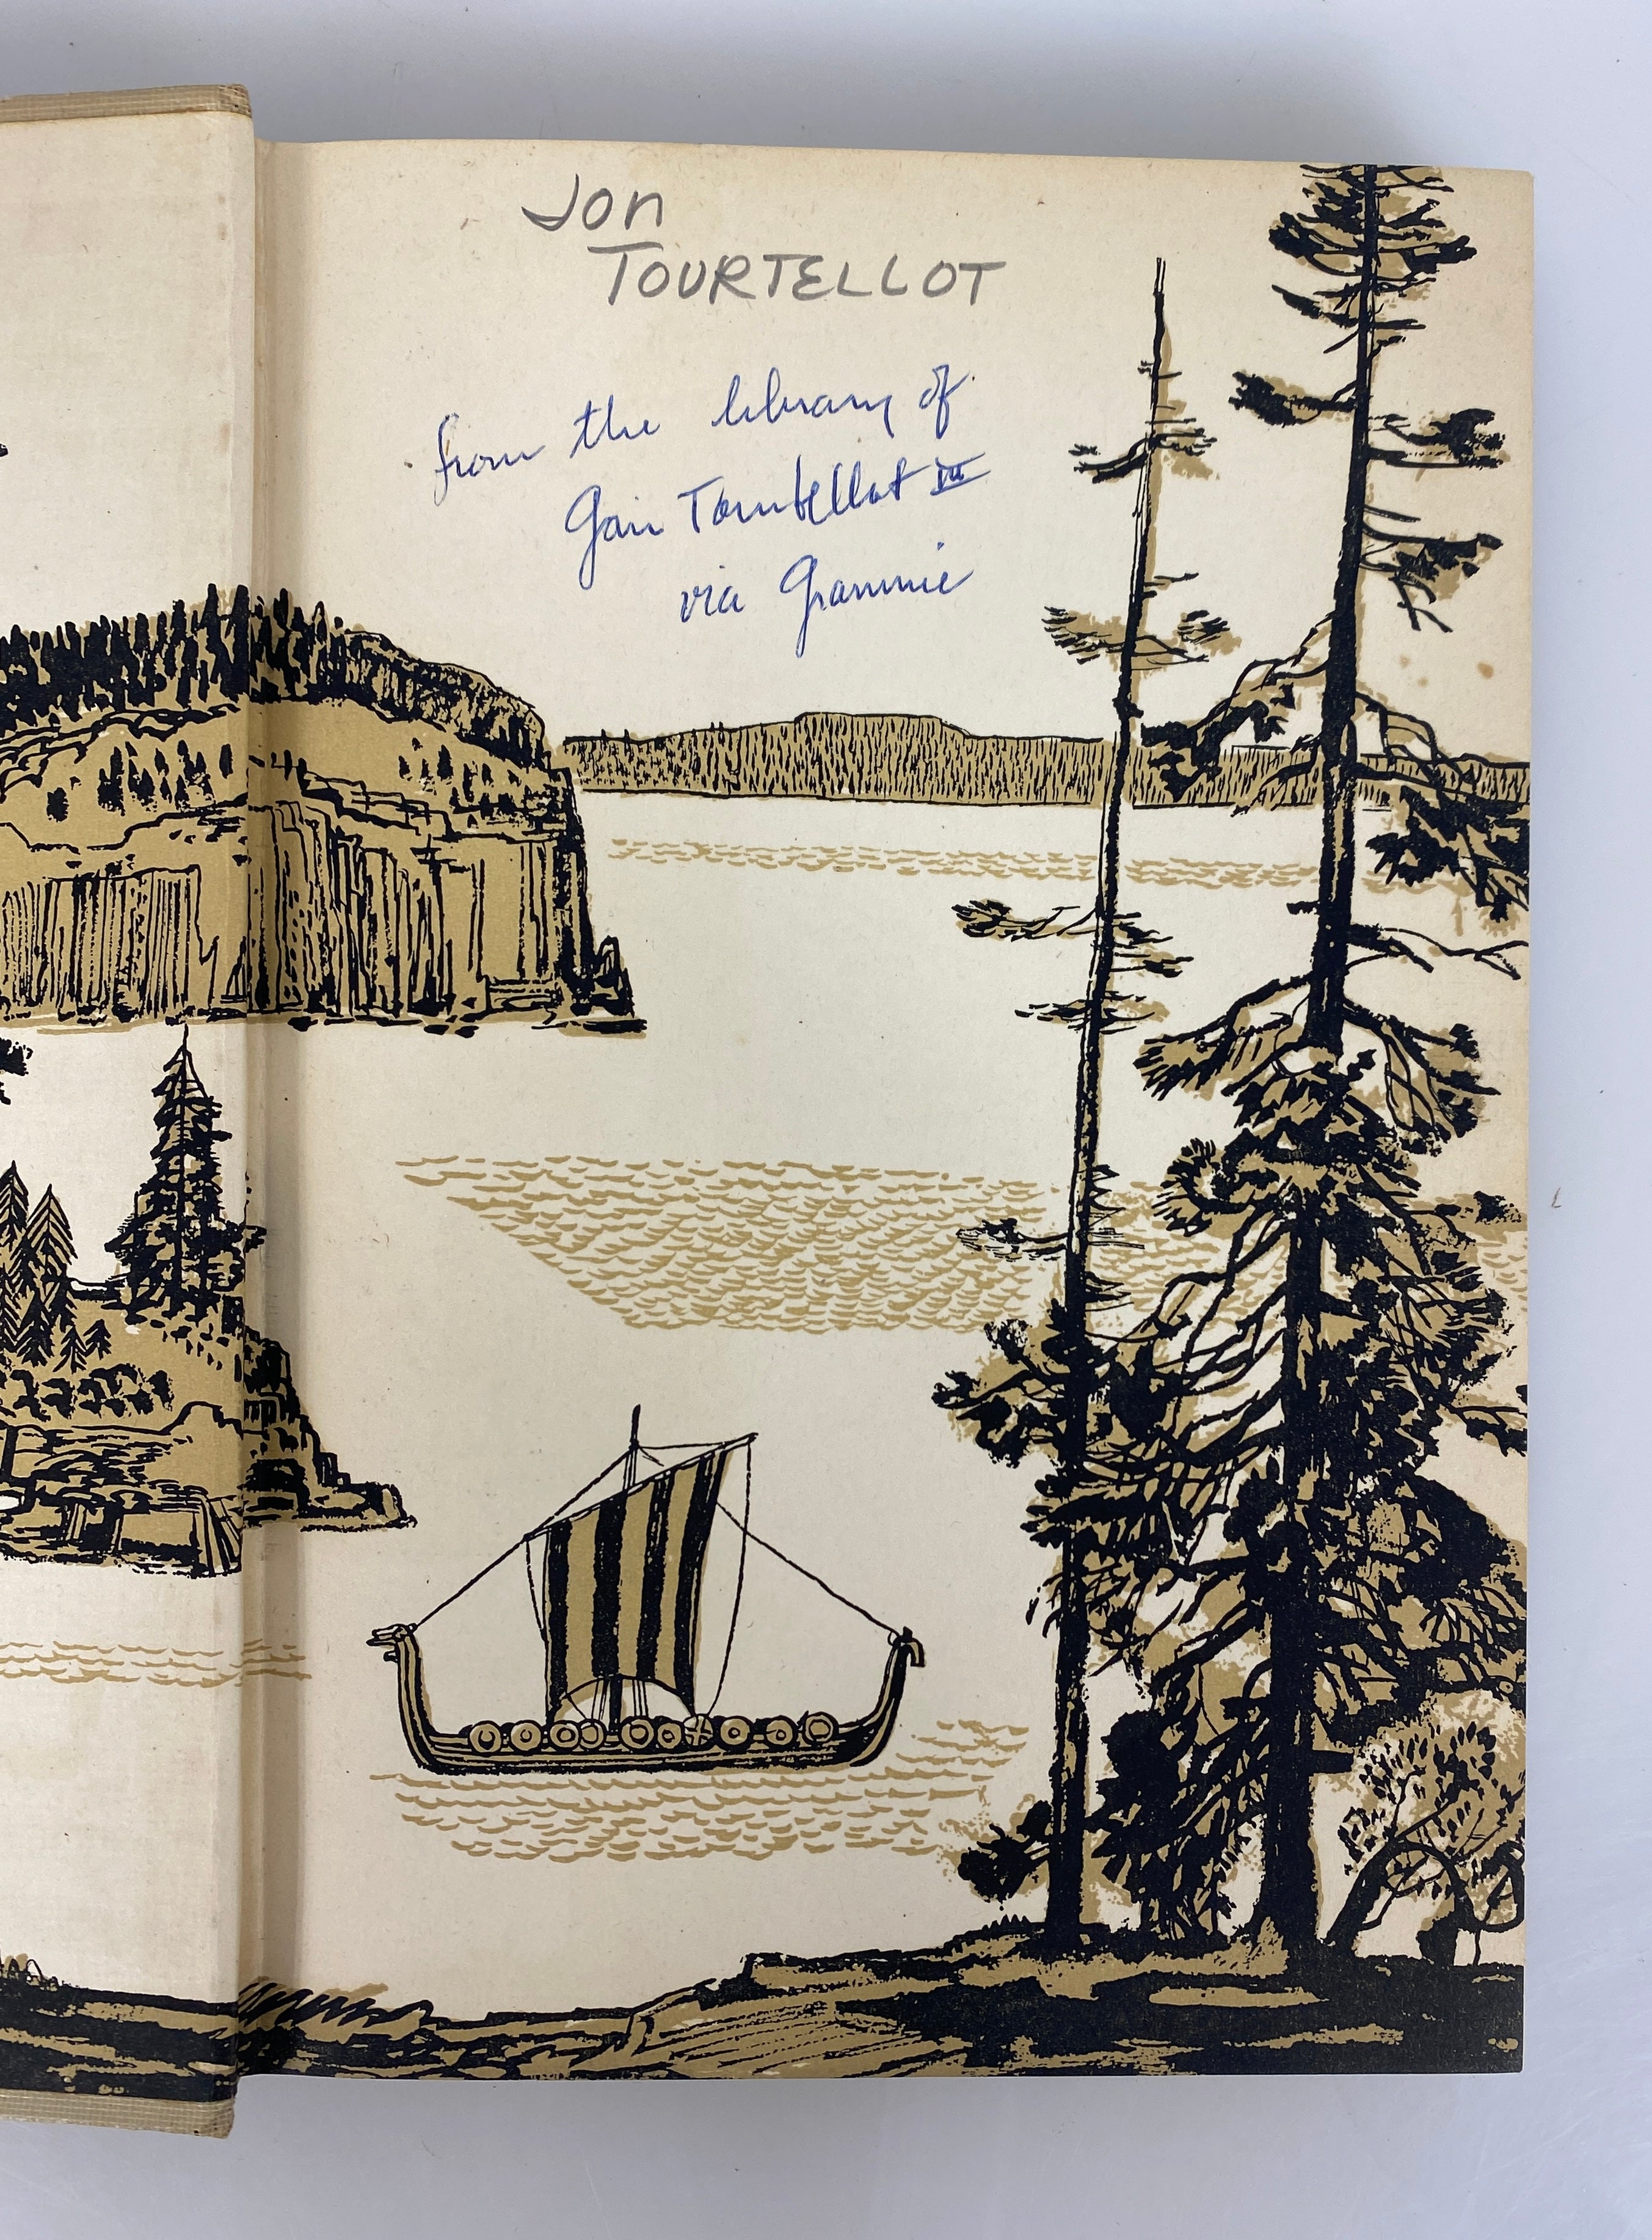 Jon
TOURTELLOT
from the library of
Gair Tourtellot III
via Grammie